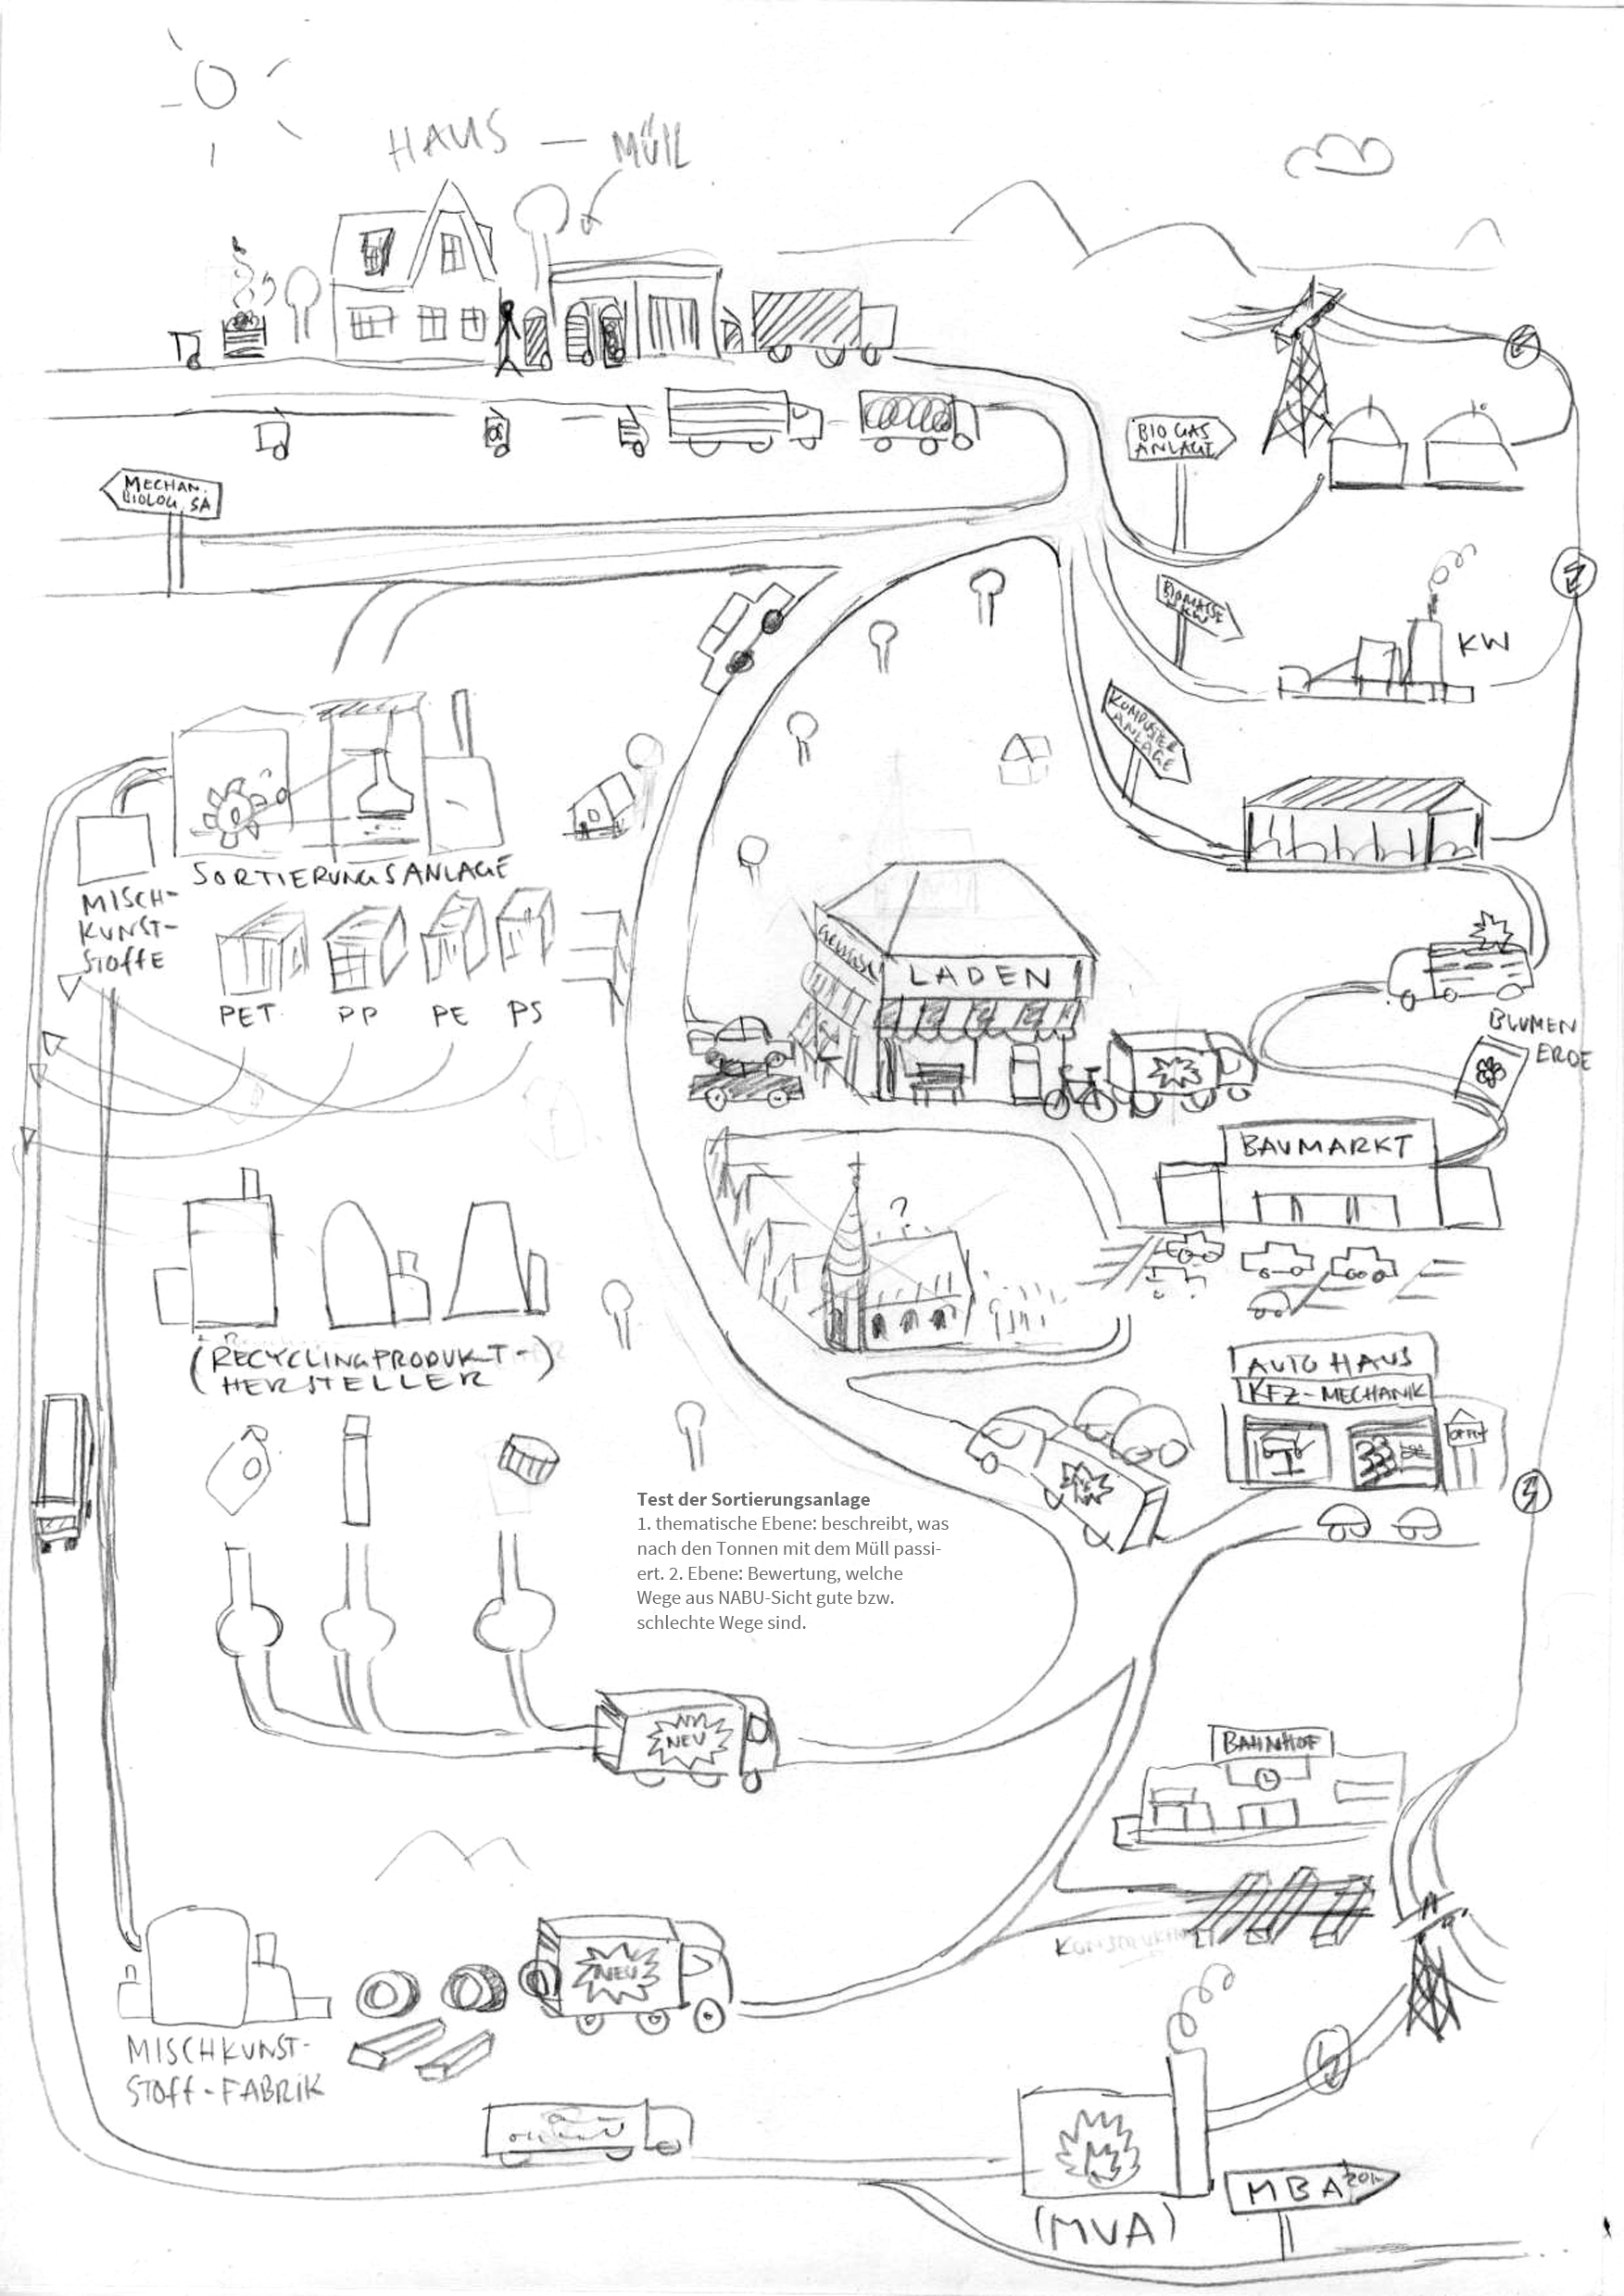 HAUS — MÜLL
BIO GAS
ANLAGE
MECHAN.
BIOLOG. SA
BIOMASSE
KW
KW
KOMPOSTER
ANLAGE
SORTIERUNGSANLAGE
MISCH-
KUNST-
STOFFE
PET
PP
PE
PS
LADEN
BLUMEN
ERDE
BAUMARKT
?
(RECYCLINGPRODUKT-
HERSTELLER)
AUTO HAUS
KFZ-MECHANIK
Test der Sortierungsanlage
1. thematische Ebene: beschreibt, was
nach den Tonnen mit dem Müll passi-
ert. 2. Ebene: Bewertung, welche
Wege aus NABU-Sicht gute bzw.
schlechte Wege sind.
NEU
BAHNHOF
NEU
MISCHKUNST-
STOFF-FABRIK
(MVA)
MBA